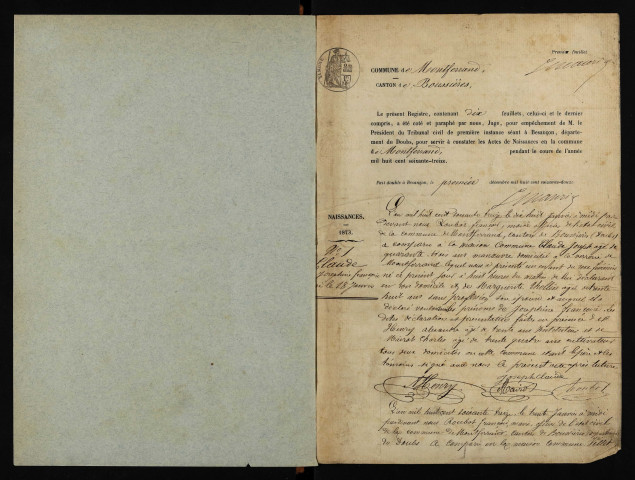 Premier feuillet
COMMUNE de Montferrand.
CANTON de Boussières.
Le présent Registre, contenant dix feuillets, celui-ci et le dernier
compris, a été coté et paraphé par nous, Juge, pour empêchement de M. le
Président du Tribunal civil de première instance séant à Besançon, départe-
ment du Doubs, pour servir à constater les Actes de Naissances en la commune
de Montferrand, pendant le cours de l'année
mil huit cent soixante-treize.
Fait double à Besançon, le premier décembre mil huit cent soixante-douze.
NAISSANCES.
1873.
N° 1
Claude
Joséphine françoise
le 18 Janvier
L'an mil huit cent soixante treize le dix huit janvier à midi par
devant nous Loubot françois, maire officier de l'état civil
de la commune de Montferrand, canton de Boussières, Doubs
a comparu à la maison commune Claude Joseph âgé de
quarante trois ans manœuvre domicilié à
Montferrand, lequel nous a présenté un enfant du sexe féminin
né ce présent jour à huit heures du matin de lui déclarant
en son domicile et de Marguerite âgée de trente
huit ans sans profession son épouse et auquel il a
déclaré vouloir donner les prénoms de Joséphine françoise les
dites déclaration et présentation faites en présence de
Henry alexandre âgé de trente ans Instituteur et de
Mairot Charles âgé de trente quatre ans cultivateur
tous deux domiciliés en cette commune et ont le père et les
témoins signé avec nous le présent acte après lecture.
Joseph Claude
AHenry Mairot Loubot
L'an mil huit cent soixante treize, le trente janvier à midi
pardevant nous Loubot françois, maire officier de l'état civil
de la commune de Montferrand, canton de Boussières, département
du Doubs a comparu en la maison commune